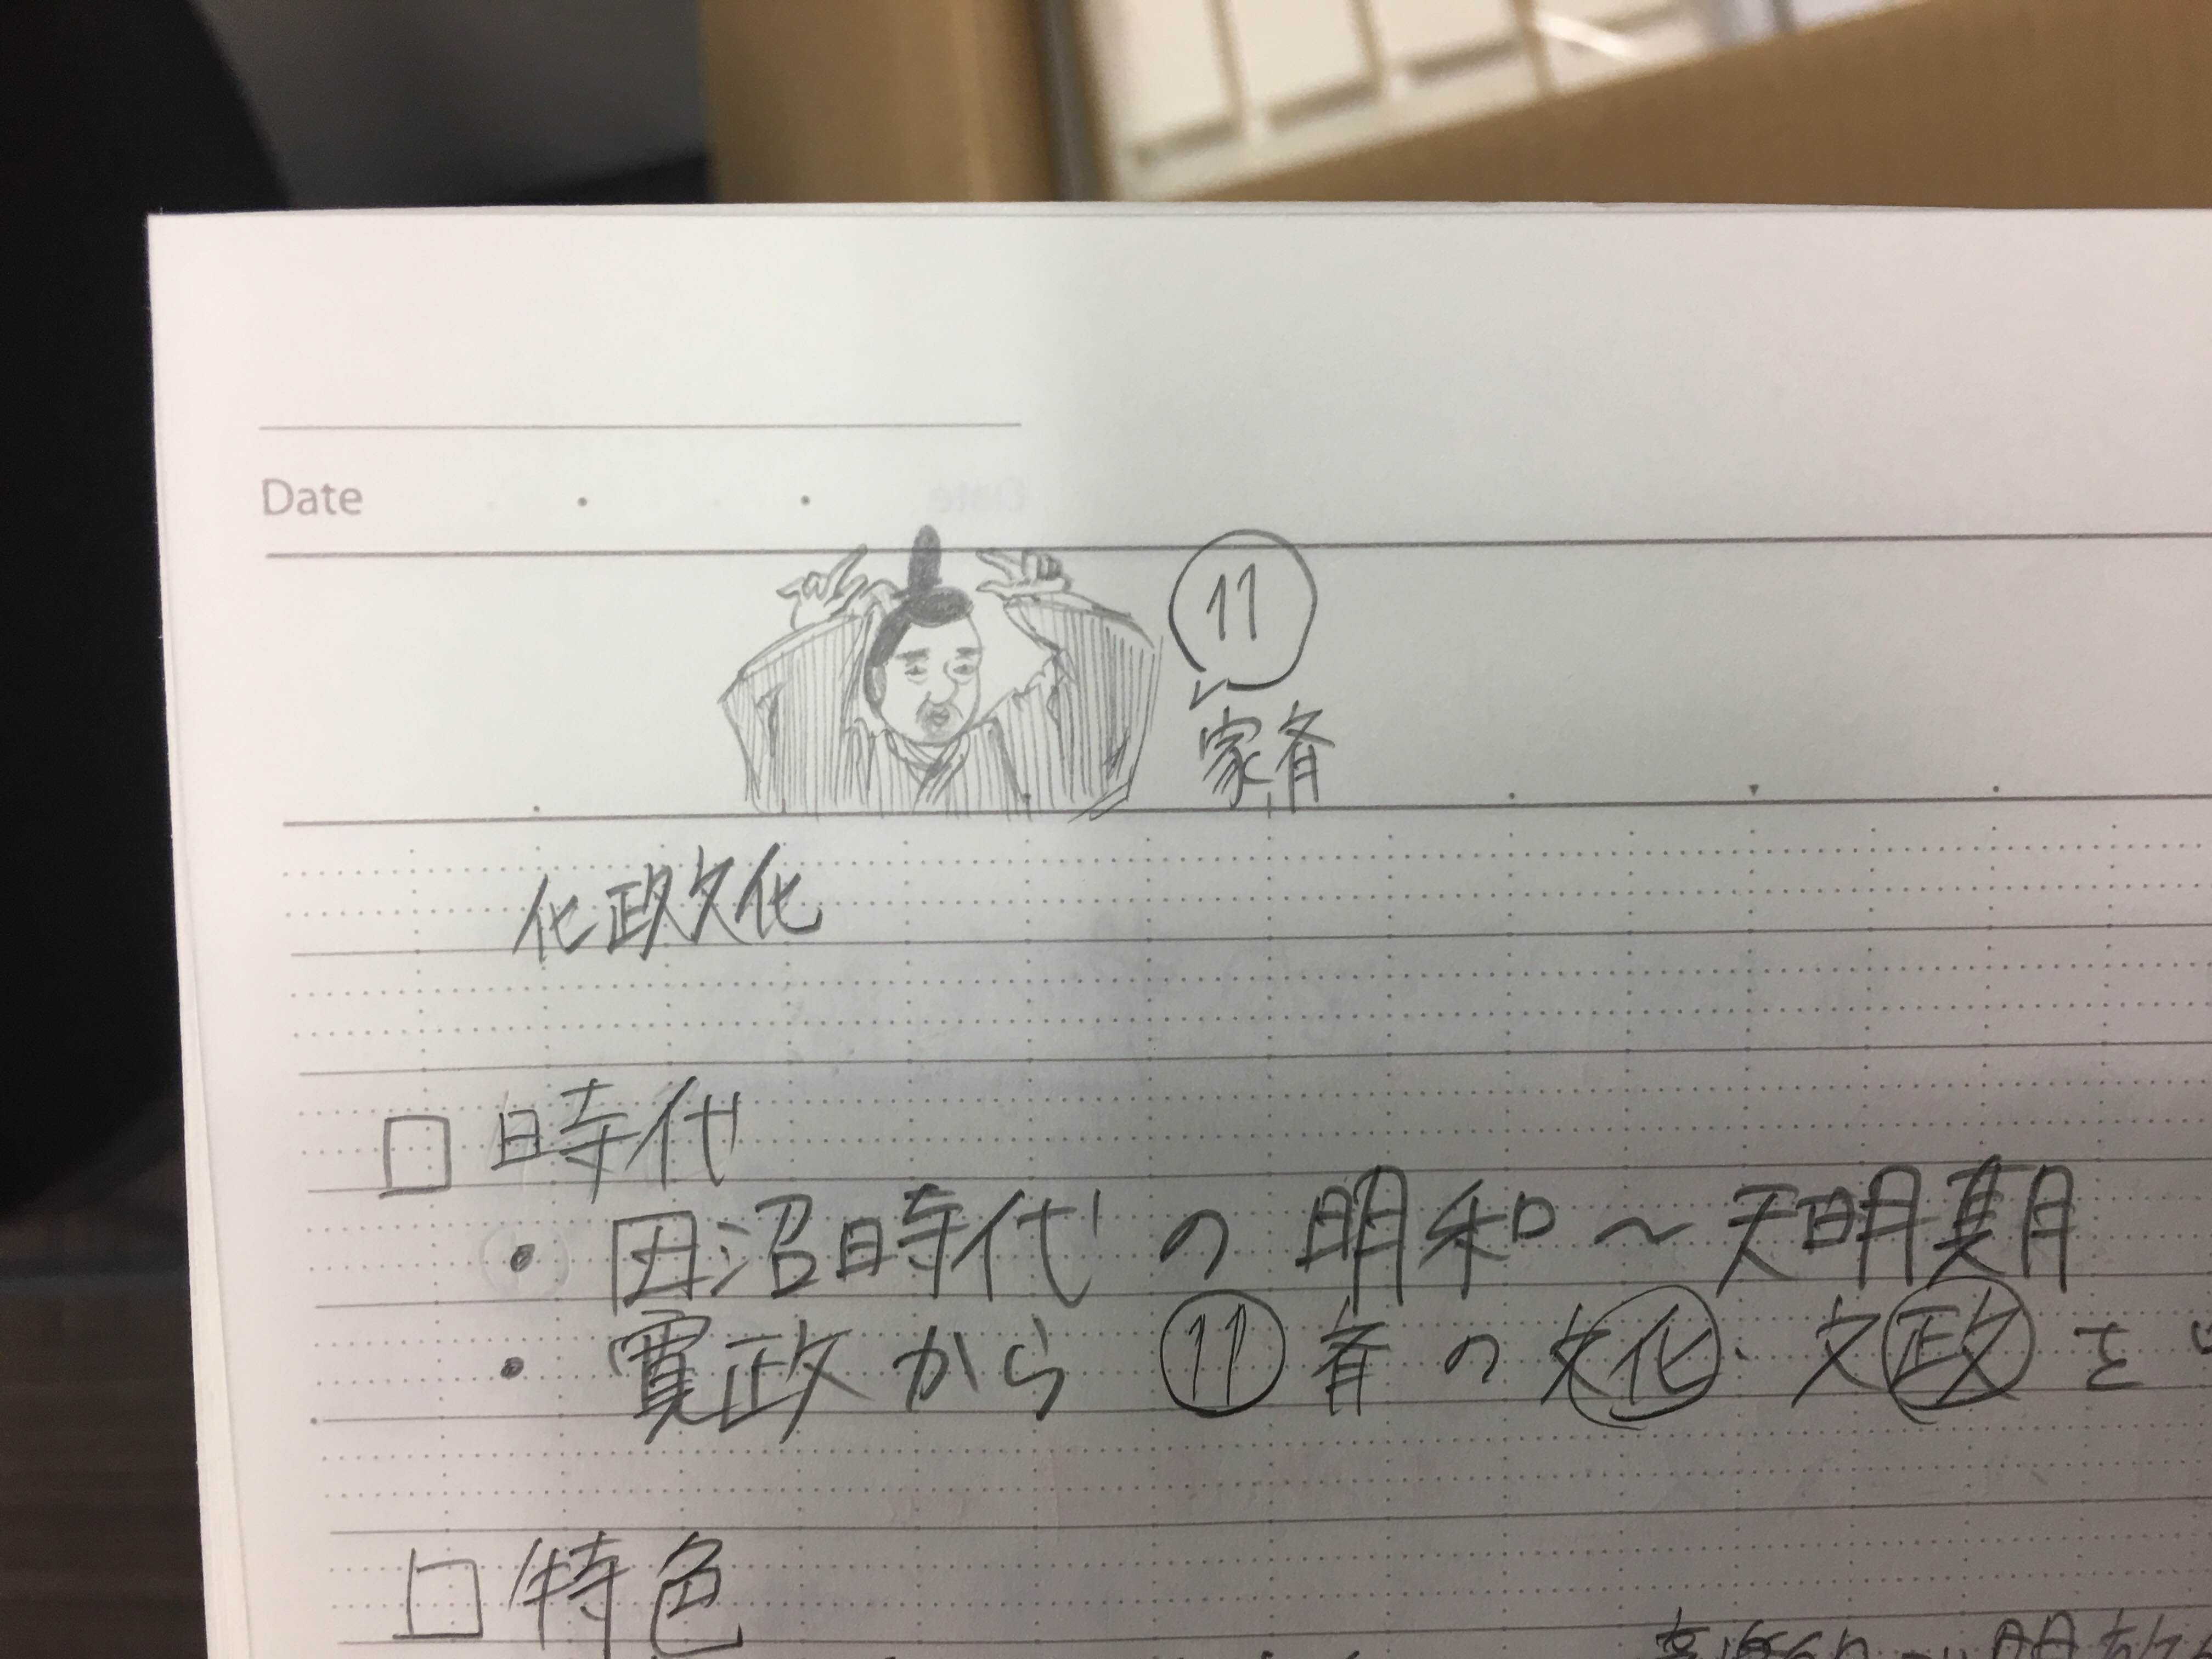 Date
⑪
家斉
化政文化
□時代
・田沼時代の明和～天明期
・寛政から⑪斉の文化・文政を
□特色